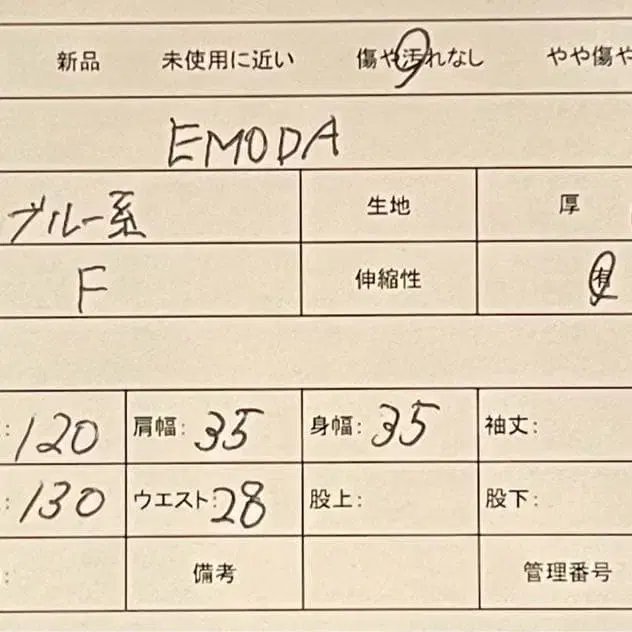 新品 未使用に近い 傷や汚れなし やや傷や
EMODA
ブルー系 生地 厚
F 伸縮性 有
: 120 肩幅: 35 身幅: 35 袖丈:
: 130 ウエスト: 28 股上: 股下:
: 備考 管理番号